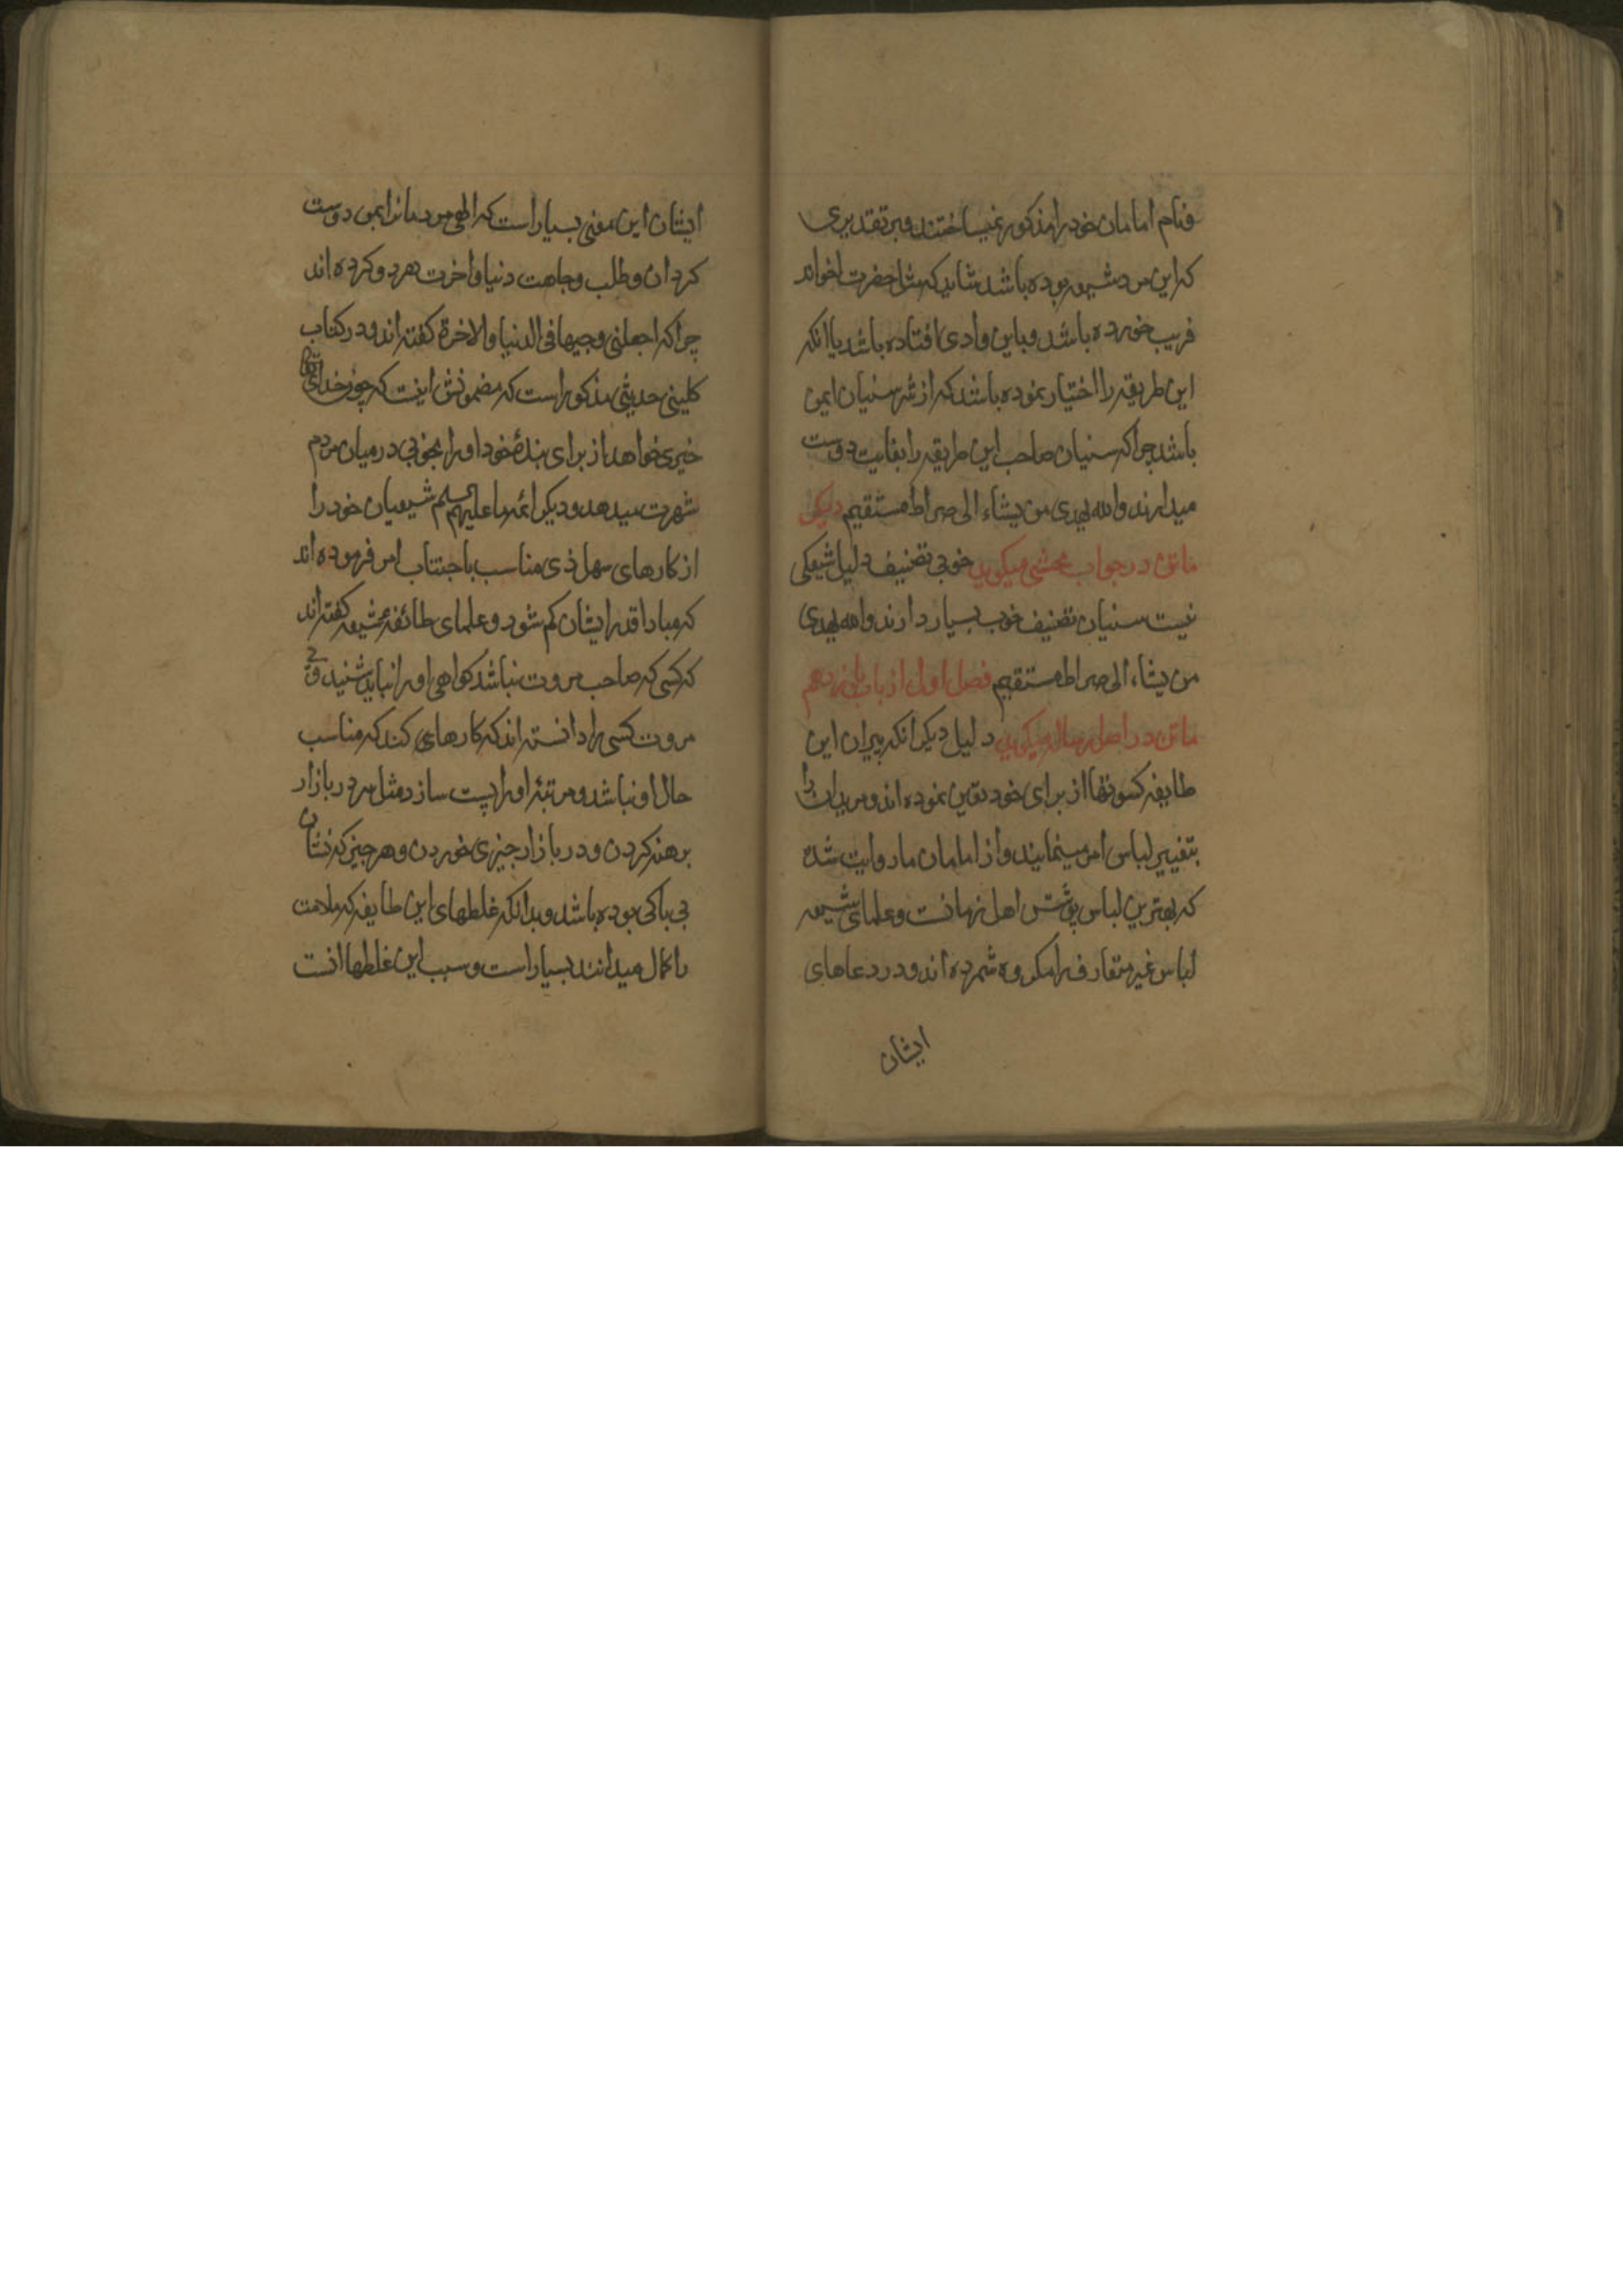 و نام امامان خود را مذکور نمیساختند و بر تقدیری
که این مرد شیعه بوده باشد شاید که مثل حضرت اخواند
فریب خورده باشد و باین وادی افتاده باشد یا انکه
این طریقه را اختیار نموده باشد که از شر سنیان ایمن
باشد چرا که سنیان صاحب این طریقه را بغایت دوست
میدارند والله یهدی من یشاء الی صراط مستقیم دیکر
ماتن در جواب محشی میکوید خوبی تصنیف دلیل شیعکی
نیست سنیان تصنیف خوب بسیار دارند والله یهدی
من یشاء الی صراط مستقیم فصل اول از باب
ماتن در اصل رساله میکوید دلیل دیکر انکه پیران این
طایفه کسوتها از برای خود تعین نموده اند و مریدان را
بتغییر لباس امر مینمایند و از امامان ما روایت شده
که بهترین لباس پوشش اهل زمانست و علمای شیعه
لباس غیر متعارف را مکروه شمرده اند و در دعاهای
ایشان
ایشان این معنی بسیار است که الهی مردمانرا بمن دوست
کردان و طلب وجاهت دنیا و اخرت هر دو کرده اند
چرا که اجعلنی وجیها فی الدنیا والاخرة کفته اند و در کتاب
کلینی حدیثی مذکور است که مضمونش اینست که چون خدای تعالی
خیری خواهد از برای بندهٔ خود او را بخوبی در میان مردم
شهرت میدهد و دیکر ائمه ما علیهم السلم شیعیان خود را
از کارهای سهل ذی مناسب باجتناب امر فرموده اند
که مبادا قدر ایشان کم شود و علمای طائفه شیعه کفته اند
که کسی که صاحب مروت نباشد کواهی او را نباید شنید و بی
مروت کسی را دانسته اند که کارهای کند که مناسب
حال او نباشد و مرتبهٔ او را پست سازد مثل سر در بازار
برهنه کردن و در بازار چیزی خوردن و هر چیز که نشان
بی باکی بوده باشد و بدانکه غلطهای این طایفه که ملامت
را کمال میدانند بسیار است و سبب این غلطها انست